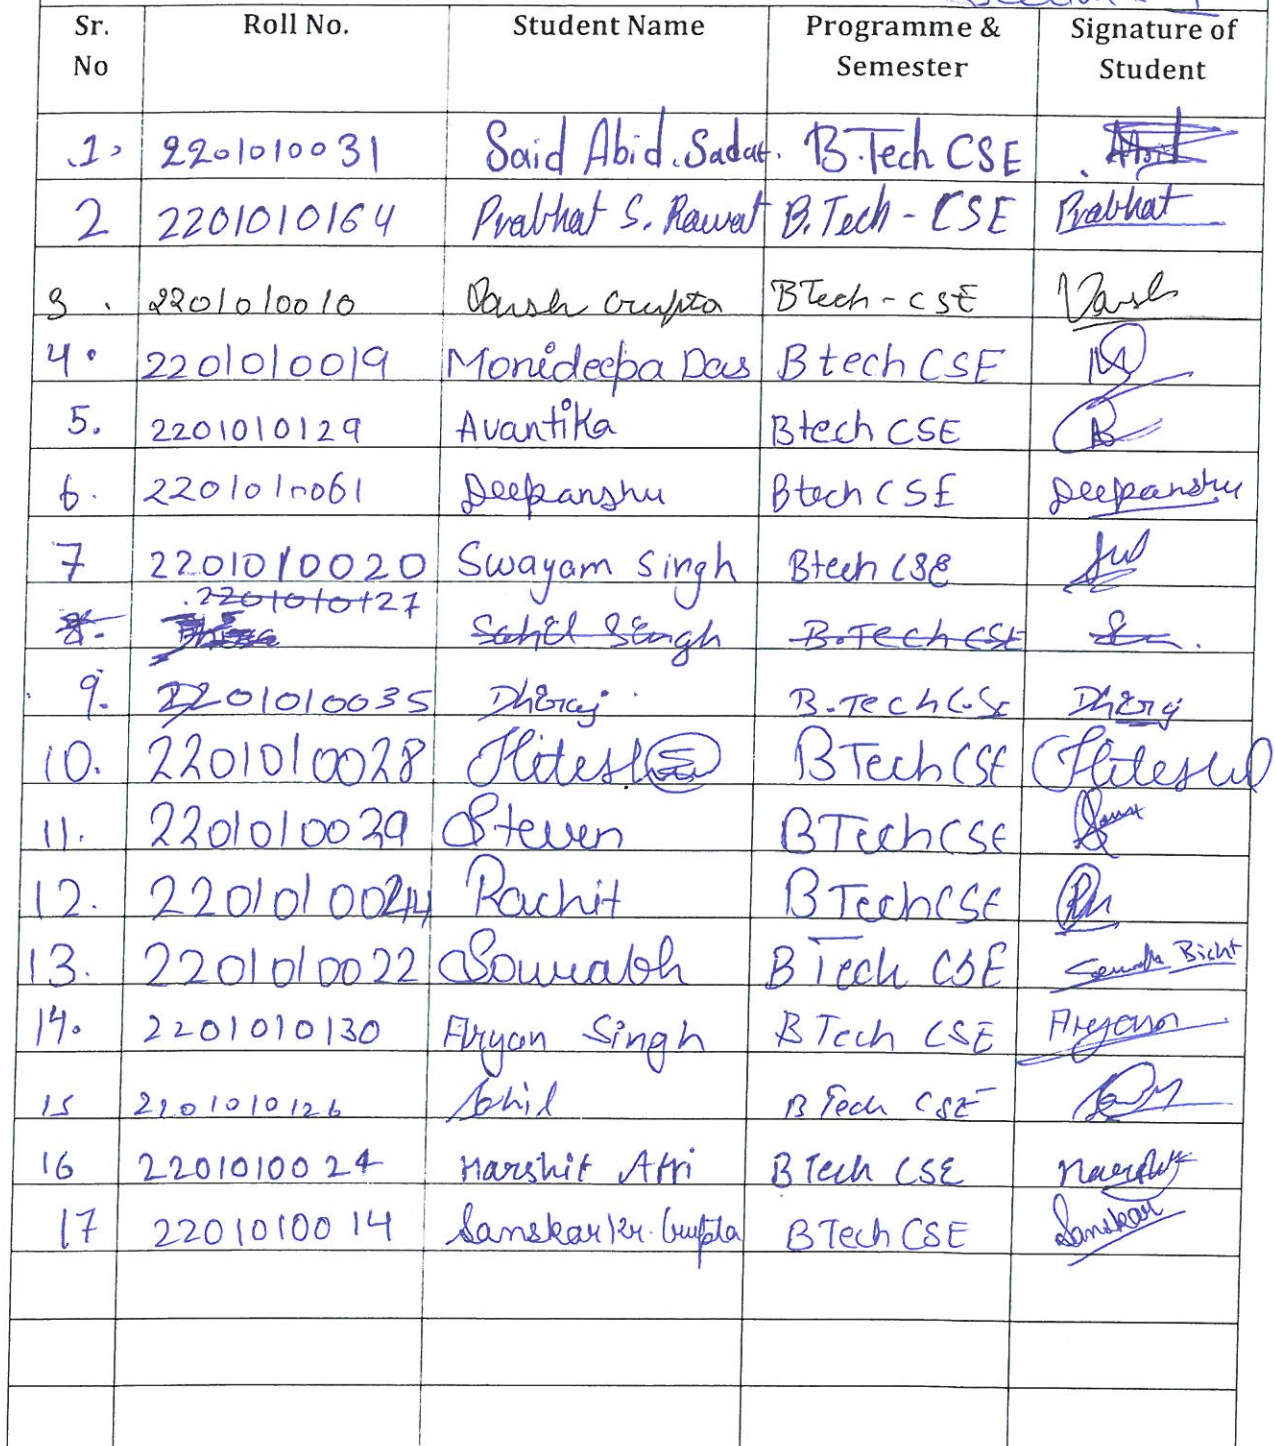 Sr. No Roll No. Student Name Programme & Semester Signature of Student
1> 2201010031 Said Abid.Sadat. B.Tech CSE
2 2201010164 Prabhat S. Rawat B.Tech - CSE Prabhat
3 . 2201010010 Vansh Gupta BTech - CSE Vansh
4. 2201010019 Monideepa Das Btech CSE
5. 2201010129 Avantika Btech CSE
6. 2201010061 Deepanshu Btech CSE Deepanshu
7 2201010020 Swayam Singh Btech CSE
8. 2201010127 Sahil Singh B.Tech CSE
9. 2201010035 Dhiraj B.Tech CSE Dhiraj
10. 2201010028 Hitesh BTech CSE Hitesh
11. 2201010039 Steven BTech CSE
12. 2201010044 Rachit BTech CSE
13. 2201010022 Sourabh BTech CSE Bisht
14. 2201010130 Aryan Singh BTech CSE Aryan
15 2201010126 Sahil BTech CSE
16 2201010024 Harshit Attri BTech CSE Harshit
17 2201010014 Sanskar Kr. Gupta BTech CSE Sanskar